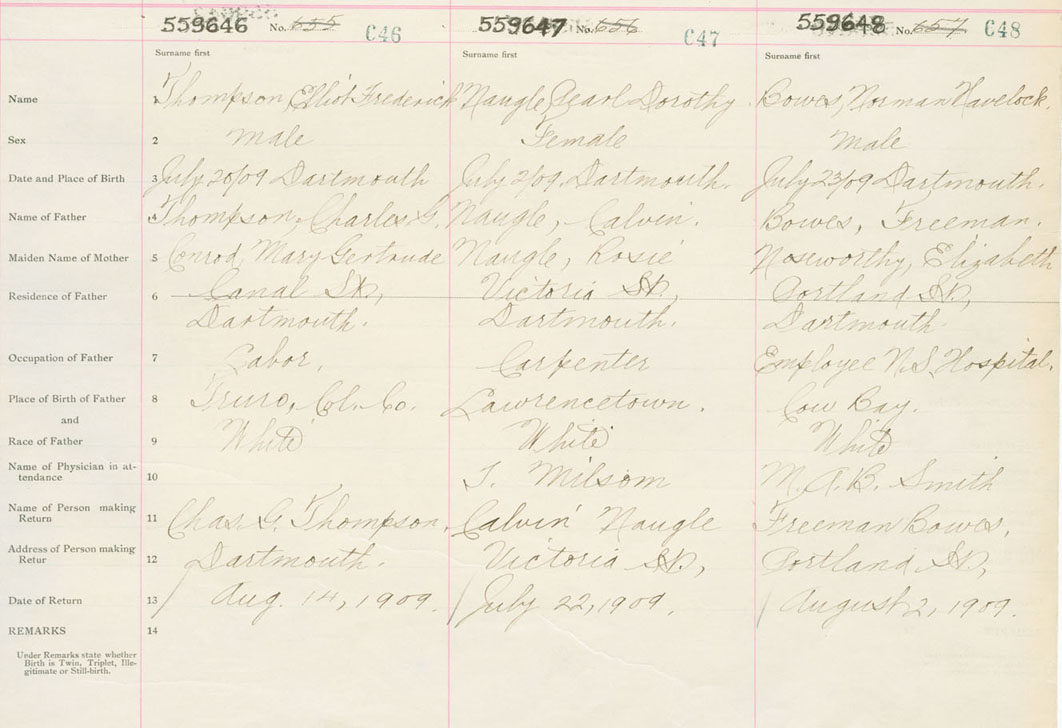 559646 No. 655 C46 559647 No. 656 C47 559648 No. 657 C48
Surname first Surname first Surname first
Name 1 Thompson, Elliot Frederick Naugle, Pearl Dorothy Bowes, Norman Havelock.
Sex 2 male Female male
Date and Place of Birth 3 July 20/09 Dartmouth July 2/09, Dartmouth. July 23/09 Dartmouth.
Name of Father 4 Thompson, Charles G. Naugle, Calvin. Bowes, Freeman.
Maiden Name of Mother 5 Conrod, Mary Gertrude Naugle, Rosie Noseworthy, Elizabeth
Residence of Father 6 Canal St., Victoria St., Portland St,
Dartmouth. Dartmouth. Dartmouth.
Occupation of Father 7 Labor, Carpenter Employee N.S. Hospital.
Place of Birth of Father 8 Truro, Col. Co. Lawrencetown. Cow Bay.
and
Race of Father 9 White White White
Name of Physician in at-
tendance 10 T. Milsom M.A.B. Smith
Name of Person making
Return 11 Chas. G. Thompson, Calvin Naugle Freeman Bowes,
Address of Person making
Retur 12 Dartmouth. Victoria St., Portland St,
Date of Return 13 Aug. 14, 1909. July 22, 1909. August 2, 1909.
REMARKS 14
Under Remarks state whether
Birth is Twin, Triplet, Ille-
gitimate or Still-birth.